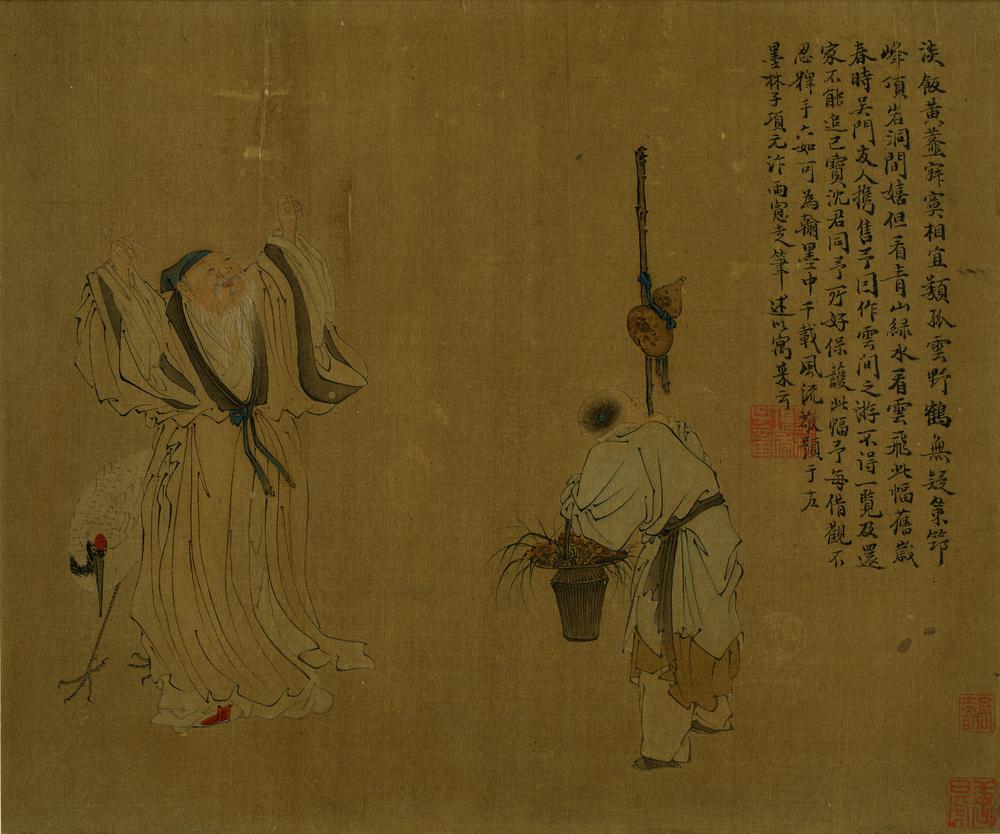 淡飯黃虀寂寞相宜類孤雲野鶴無疑策笻
峰頂岩洞間嬉但看青山綠水看雲飛此幅舊歲
春時吴門友人携售予因作雲间之游不得一覽及還
家不能追已寶沈君同予所好保護此幅予每借觀不
忍釋手六如可為翰墨中千載風流敬題于左
墨林子項元汴雨窗走筆述以寓采云